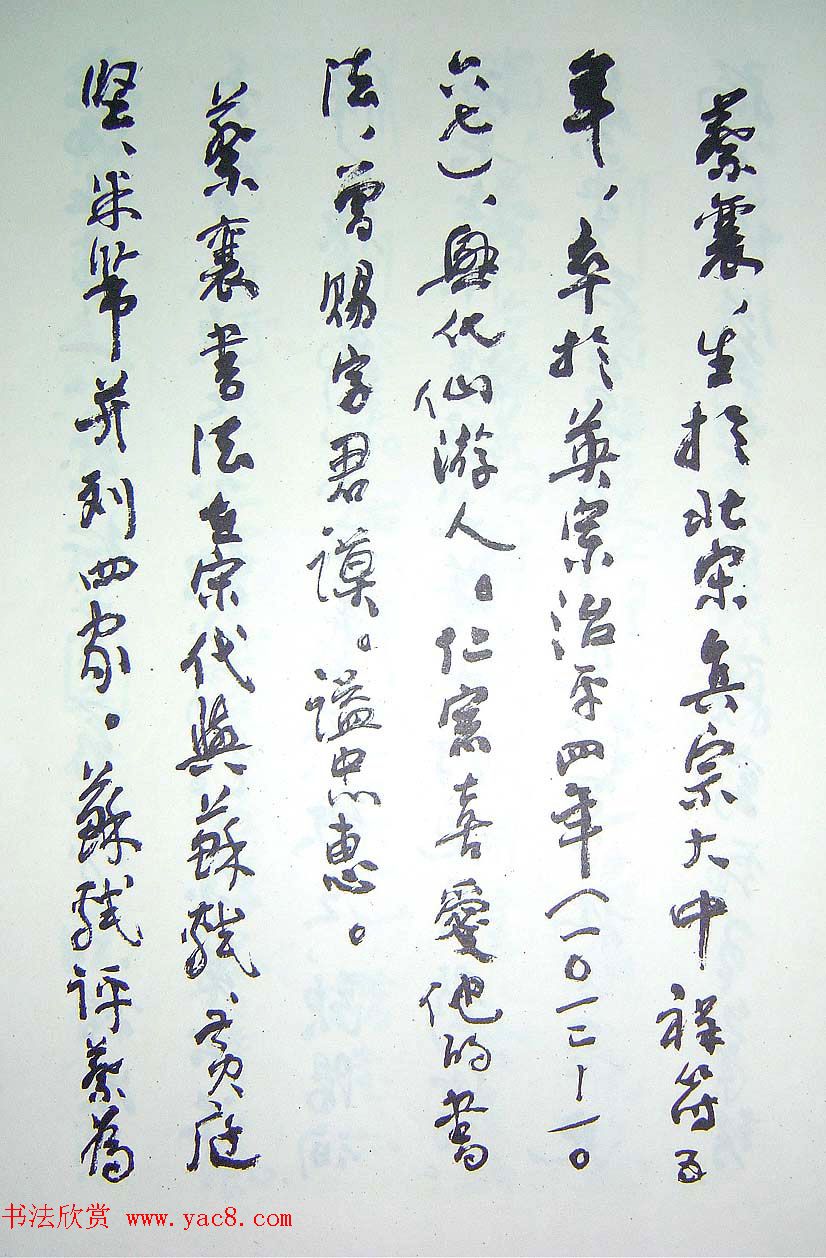 蔡襄，生於北宋真宗大中祥符五
年，卒於英宗治平四年（一〇一二－一〇
六七），興化仙游人。仁宗喜愛他的書
法，曾賜字君謨。謚忠惠。
蔡襄書法在宋代與蘇軾、黃庭
堅、米芾并列四家。蘇軾評蔡為
书法欣赏 www.yac8.com